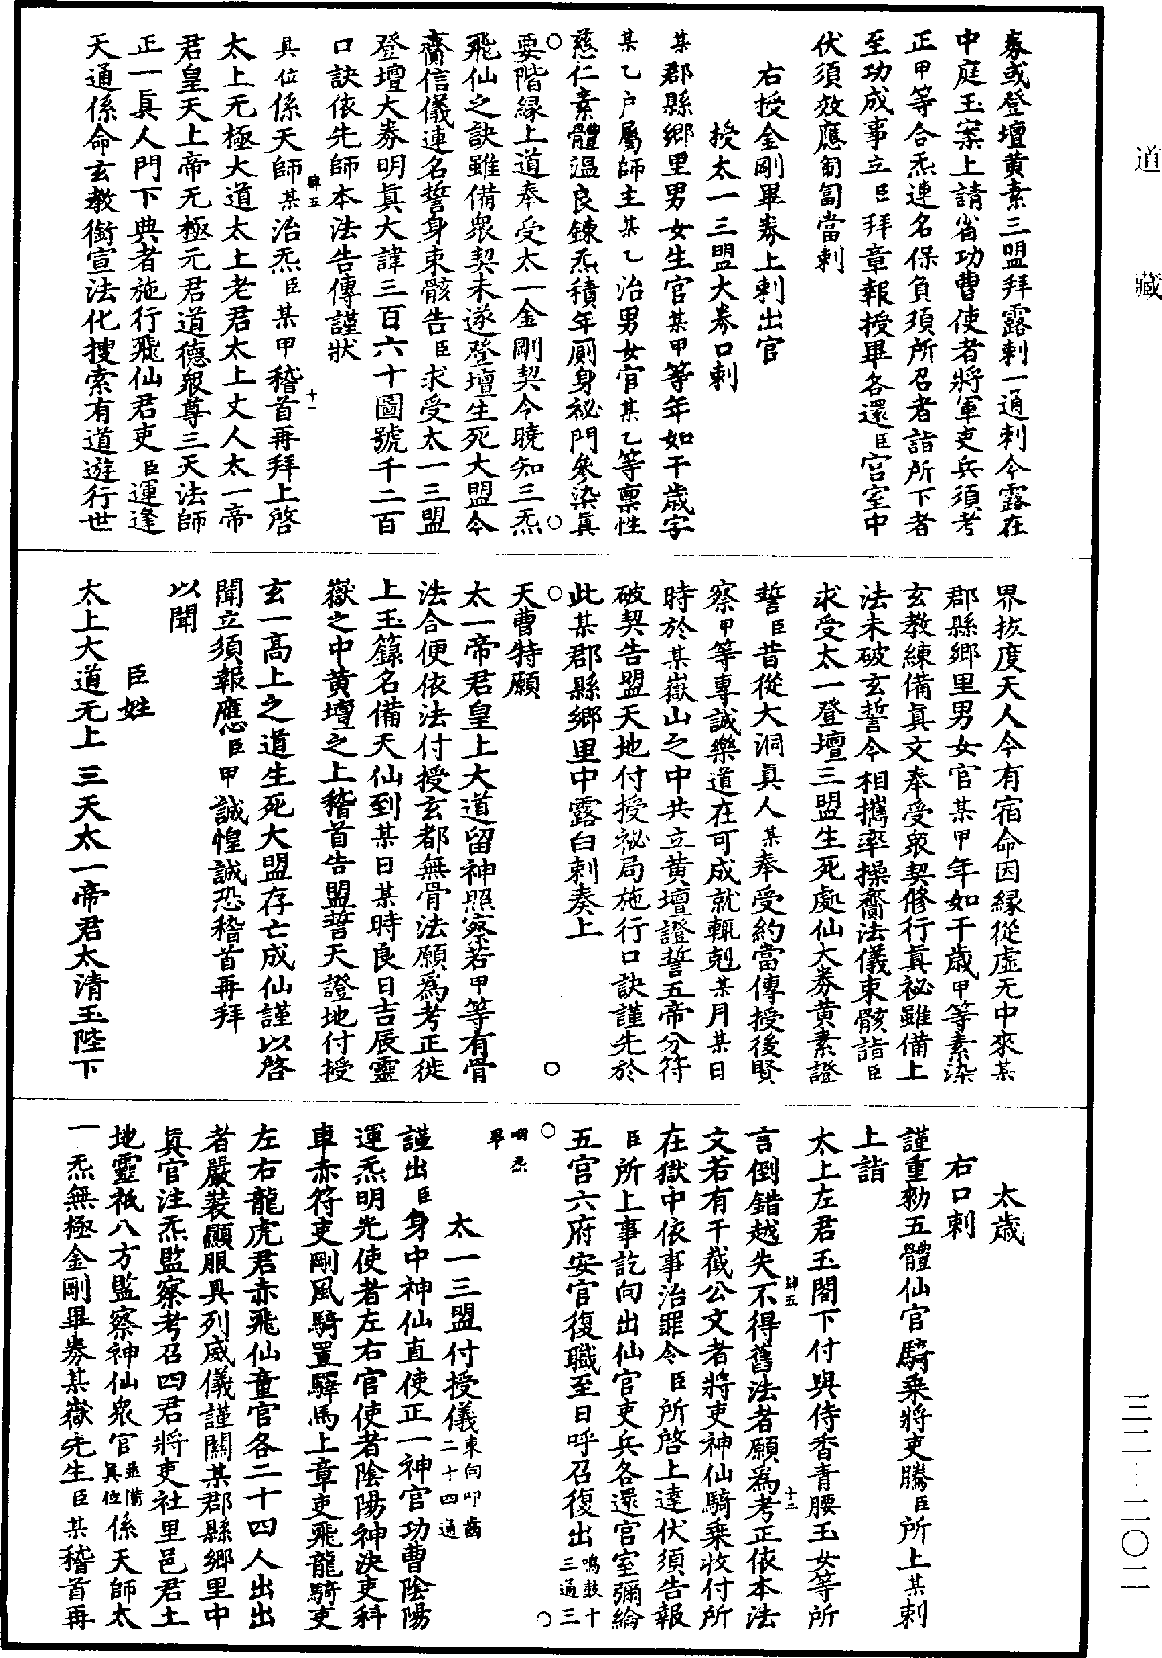 道藏
券或登壇黄素三盟拜露刺一通刺今露在
中庭玉案上請省功曹使者將軍吏兵須考
正甲等合炁連名保負須所召者詣所下者
至功成事立臣拜章報授畢各還臣宫室中
伏須效應匍匐當刺
右授金剛畢券上刺出官
授太一三盟大券口刺
某郡縣鄉里男女生官某甲等年如干歲字
某乙户屬師主某乙治男女官某乙等禀性
慈仁素體温良鍊炁積年厠身祕門參染真
要階縁上道奉受太一金剛契今曉知三炁
飛仙之訣雖備衆契未遂登壇生死大盟今
齎信儀連名誓身束骸告臣求受太一三盟
登壇大券明真大諱三百六十圖號千二百
口訣依先師本法告傳謹狀
具位係天師某治炁臣某甲稽首再拜上啓
肆五
十一
太上无極大道太上老君太上丈人太一帝
君皇天上帝无極元君道德衆尊三天法師
正一真人門下典者施行飛仙君吏臣運逢
天通係命玄教銜宣法化搜索有道遊行世
界拔度天人今有宿命因縁從虚无中來某
郡縣鄉里男女官某甲年如干歲甲等素染
玄教練備真文奉受衆契修行真祕雖備上
法未破玄誓今相攜率操齎法儀束骸詣臣
求受太一登壇三盟生死處仙大券黄素證
誓臣昔從大洞真人某奉受約當傳授後賢
察甲等專誠樂道在可成就輒剋某月某日
時於某嶽山之中共立黄壇證誓五帝分符
破契告盟天地付授祕局施行口訣謹先於
此某郡縣鄉里中露白刺奏上
天曹特願
太一帝君皇上大道留神照察若甲等有骨
法合便依法付授玄都無骨法願爲考正徙
上玉籙名備天仙到某日某時良日吉辰靈
嶽之中黄壇之上稽首告盟誓天證地付授
玄一高上之道生死大盟存亡成仙謹以啓
聞立須報應臣甲誠惶誠恐稽首再拜
以聞
臣姓
太上大道无上三天太一帝君太清玉陛下
太歲
右口刺
謹重勑五體仙官騎乘將吏騰臣所上某刺
上詣
太上左君玉閣下付與侍香青腰玉女等所
言倒錯越失不得舊法者願爲考正依本法
肆五
十二
文若有干截公文者將吏神仙騎乘收付所
在獄中依事治罪令臣所啓上達伏須告報
臣所上事訖向出仙官吏兵各還官室彌綸
五宫六府安官復職至日呼召復出鳴鼓十三通三
咽炁畢
太一三盟付授儀東向叩齒二十四通
謹出臣身中神仙直使正一神官功曹陰陽
運炁明光使者左右官使者陰陽神決吏科
車赤符吏剛風騎置驛馬上章吏飛龍騎吏
左右龍虎君赤飛仙童官各二十四人出出
者嚴裝顯服具列威儀謹關某郡縣鄉里中
真官注炁監察考召四君將吏社里邑君土
地靈祇八方監察神仙衆官並階真位係天師太
一炁無極金剛畢券某嶽先生臣某稽首再
三二-二〇二